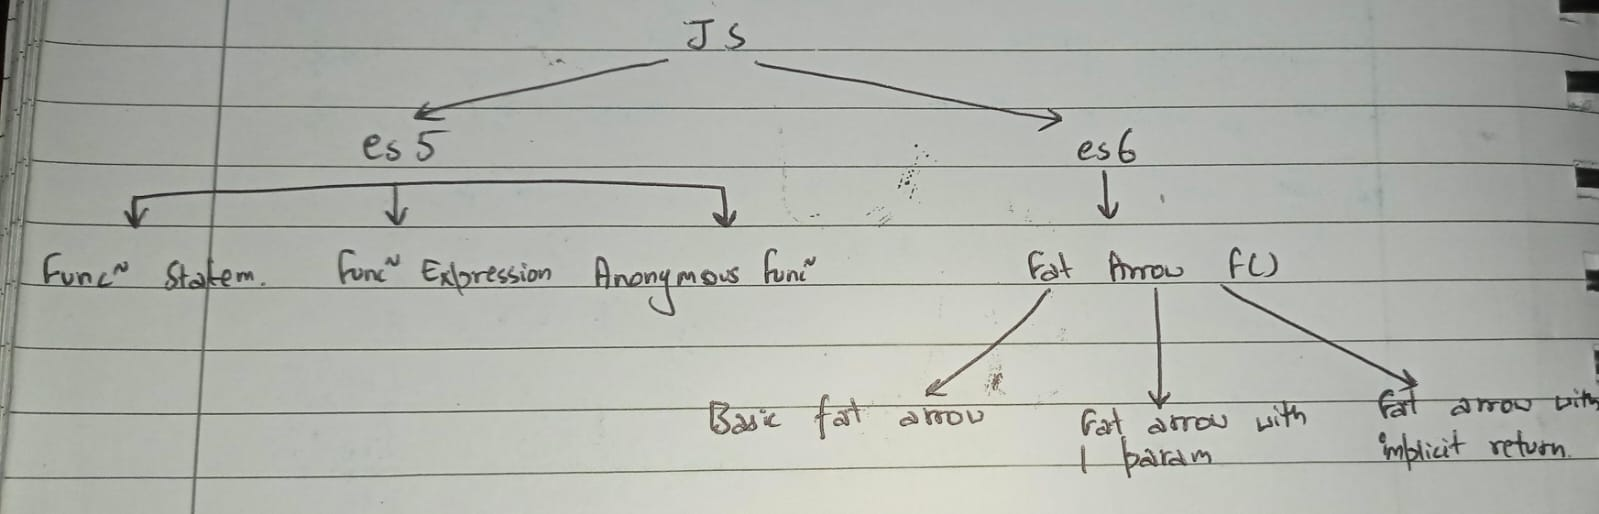 JS
es5
es6
Func~ Statem.
Func~ Expression
Anonymous Func~
Fat Arrow f()
Basic fat arrow
Fat arrow with
1 param
Fat arrow with
implicit return.